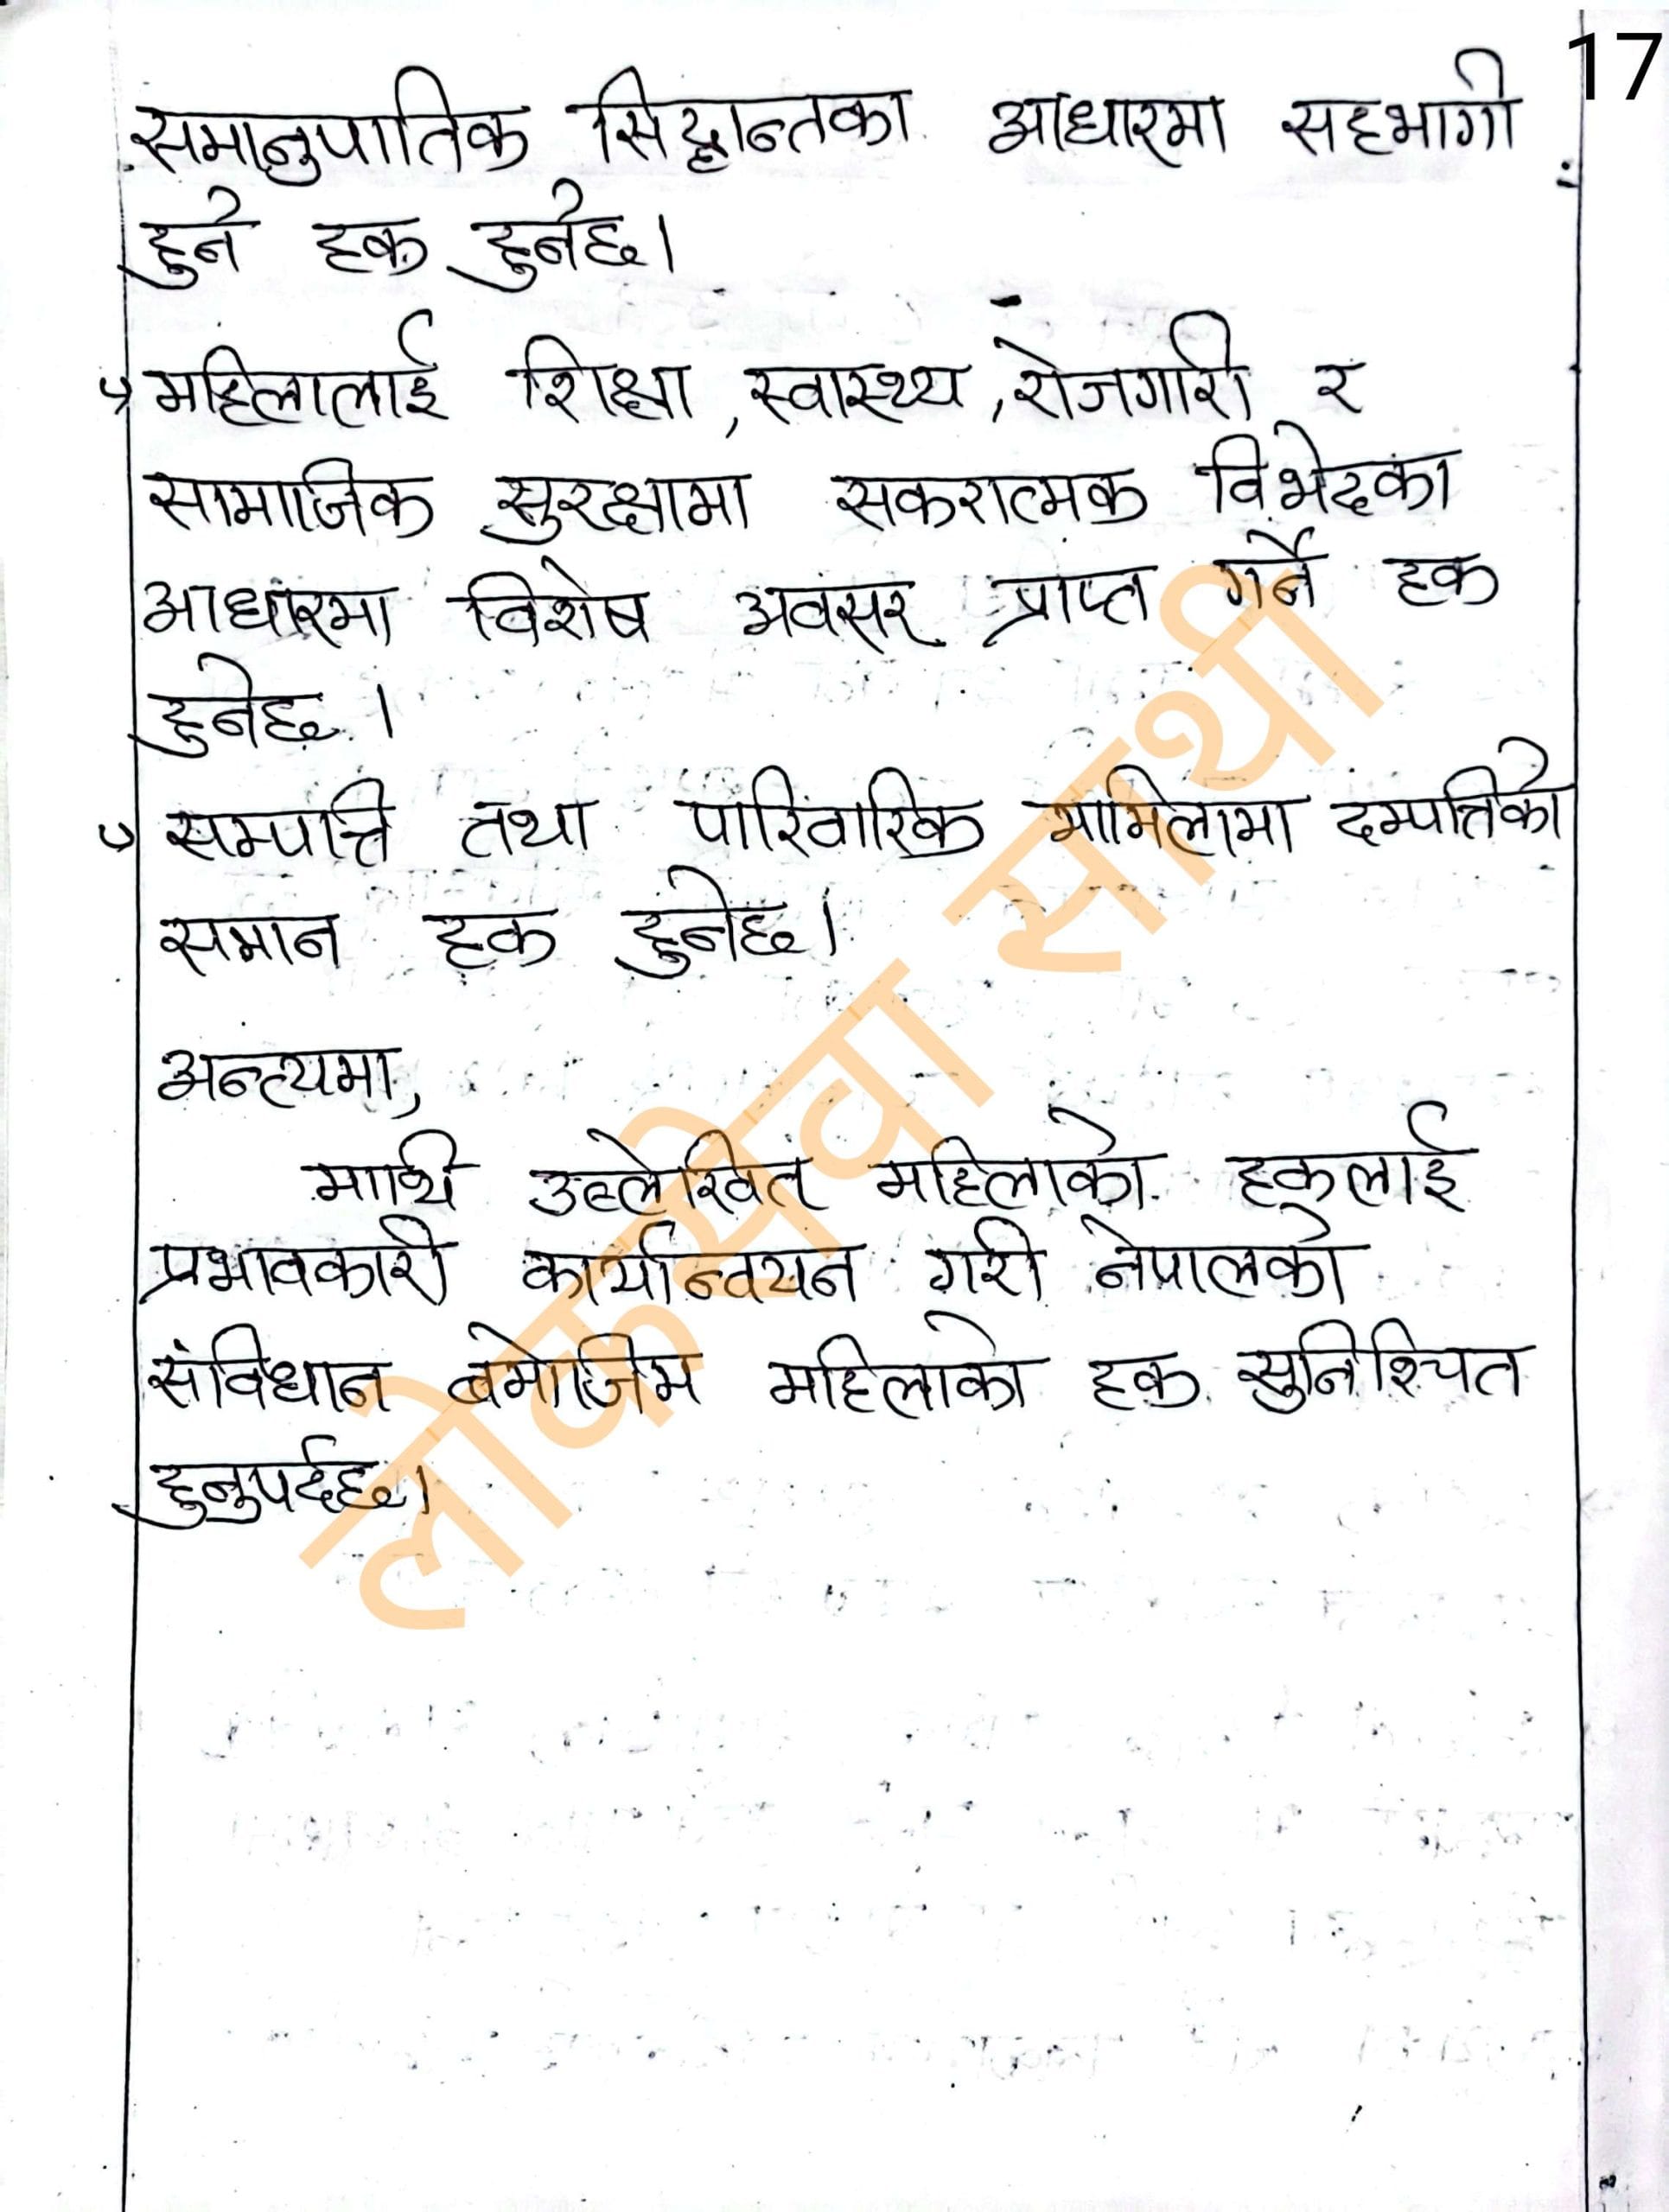 17
समानुपातिक सिद्धान्तका आधारमा सहभागी
हुने हक हुनेछ।
महिलालाई शिक्षा, स्वास्थ्य, रोजगारी र
सामाजिक सुरक्षामा सकरात्मक विभेदका
आधारमा विशेष अवसर प्राप्त गर्ने हक
हुनेछ।
सम्पत्ति तथा पारिवारिक मामिलामा दम्पत्तिको
समान हक हुनेछ।
अन्त्यमा,
माथि उल्लेखित महिलाको हकलाई
प्रभावकारी कार्यान्वयन गरी नेपालको
संविधान बमोजिम महिलाको हक सुनिश्चित
हुनुपर्दछ।
लोकसेवा साथी